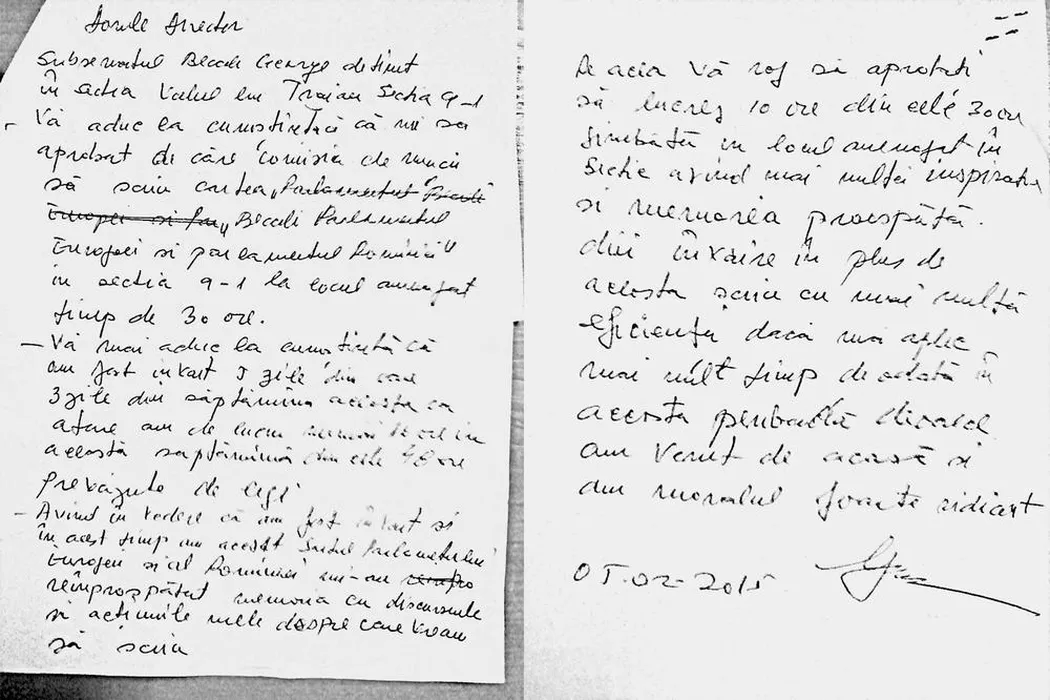 Domle Director
Subsematul Becali George detinut
în sectia Valul lui Traian Sectia 9-1
- Vă aduc la cunostiență că mi sa
aprobat de căre comisia de muncă
să scriu cartea „Parlamentul
Europei si „Becali Parlamentul
Europei si parlamentul României"
in sectia 9-1 la locul amenajat
timp de 30 ore.
- Vă mai aduc la cunostiință că
am fost invoit 5 zile din care
3 zile din săptămîna aceasta ca
atare am de lucru numai ore în
această saptămînă din cele 40 ore
prevăzute de legi
- Avind în vedere că am fost învoit si
în acest timp am accesat Saitul Parlamentului
Europei si al României mi-am
reîmprospătat memoria cu discursurile
si actiunile mele despre care vream
să scriu
De aceia Vă rog să aprobati
să lucrez 10 ore din cele 30 ore
simbătă in locul amenajat în
Sectie avind mai multă inspiratie
si memoria proaspătă.
din învoire în plus de
aceasta scriu cu mai multă
eficiență daca mai aplec
mai mult timp deodată în
aceasta perioadă deoarece
am venit de acasă si
am moralul foarte ridicat
05-02-2015